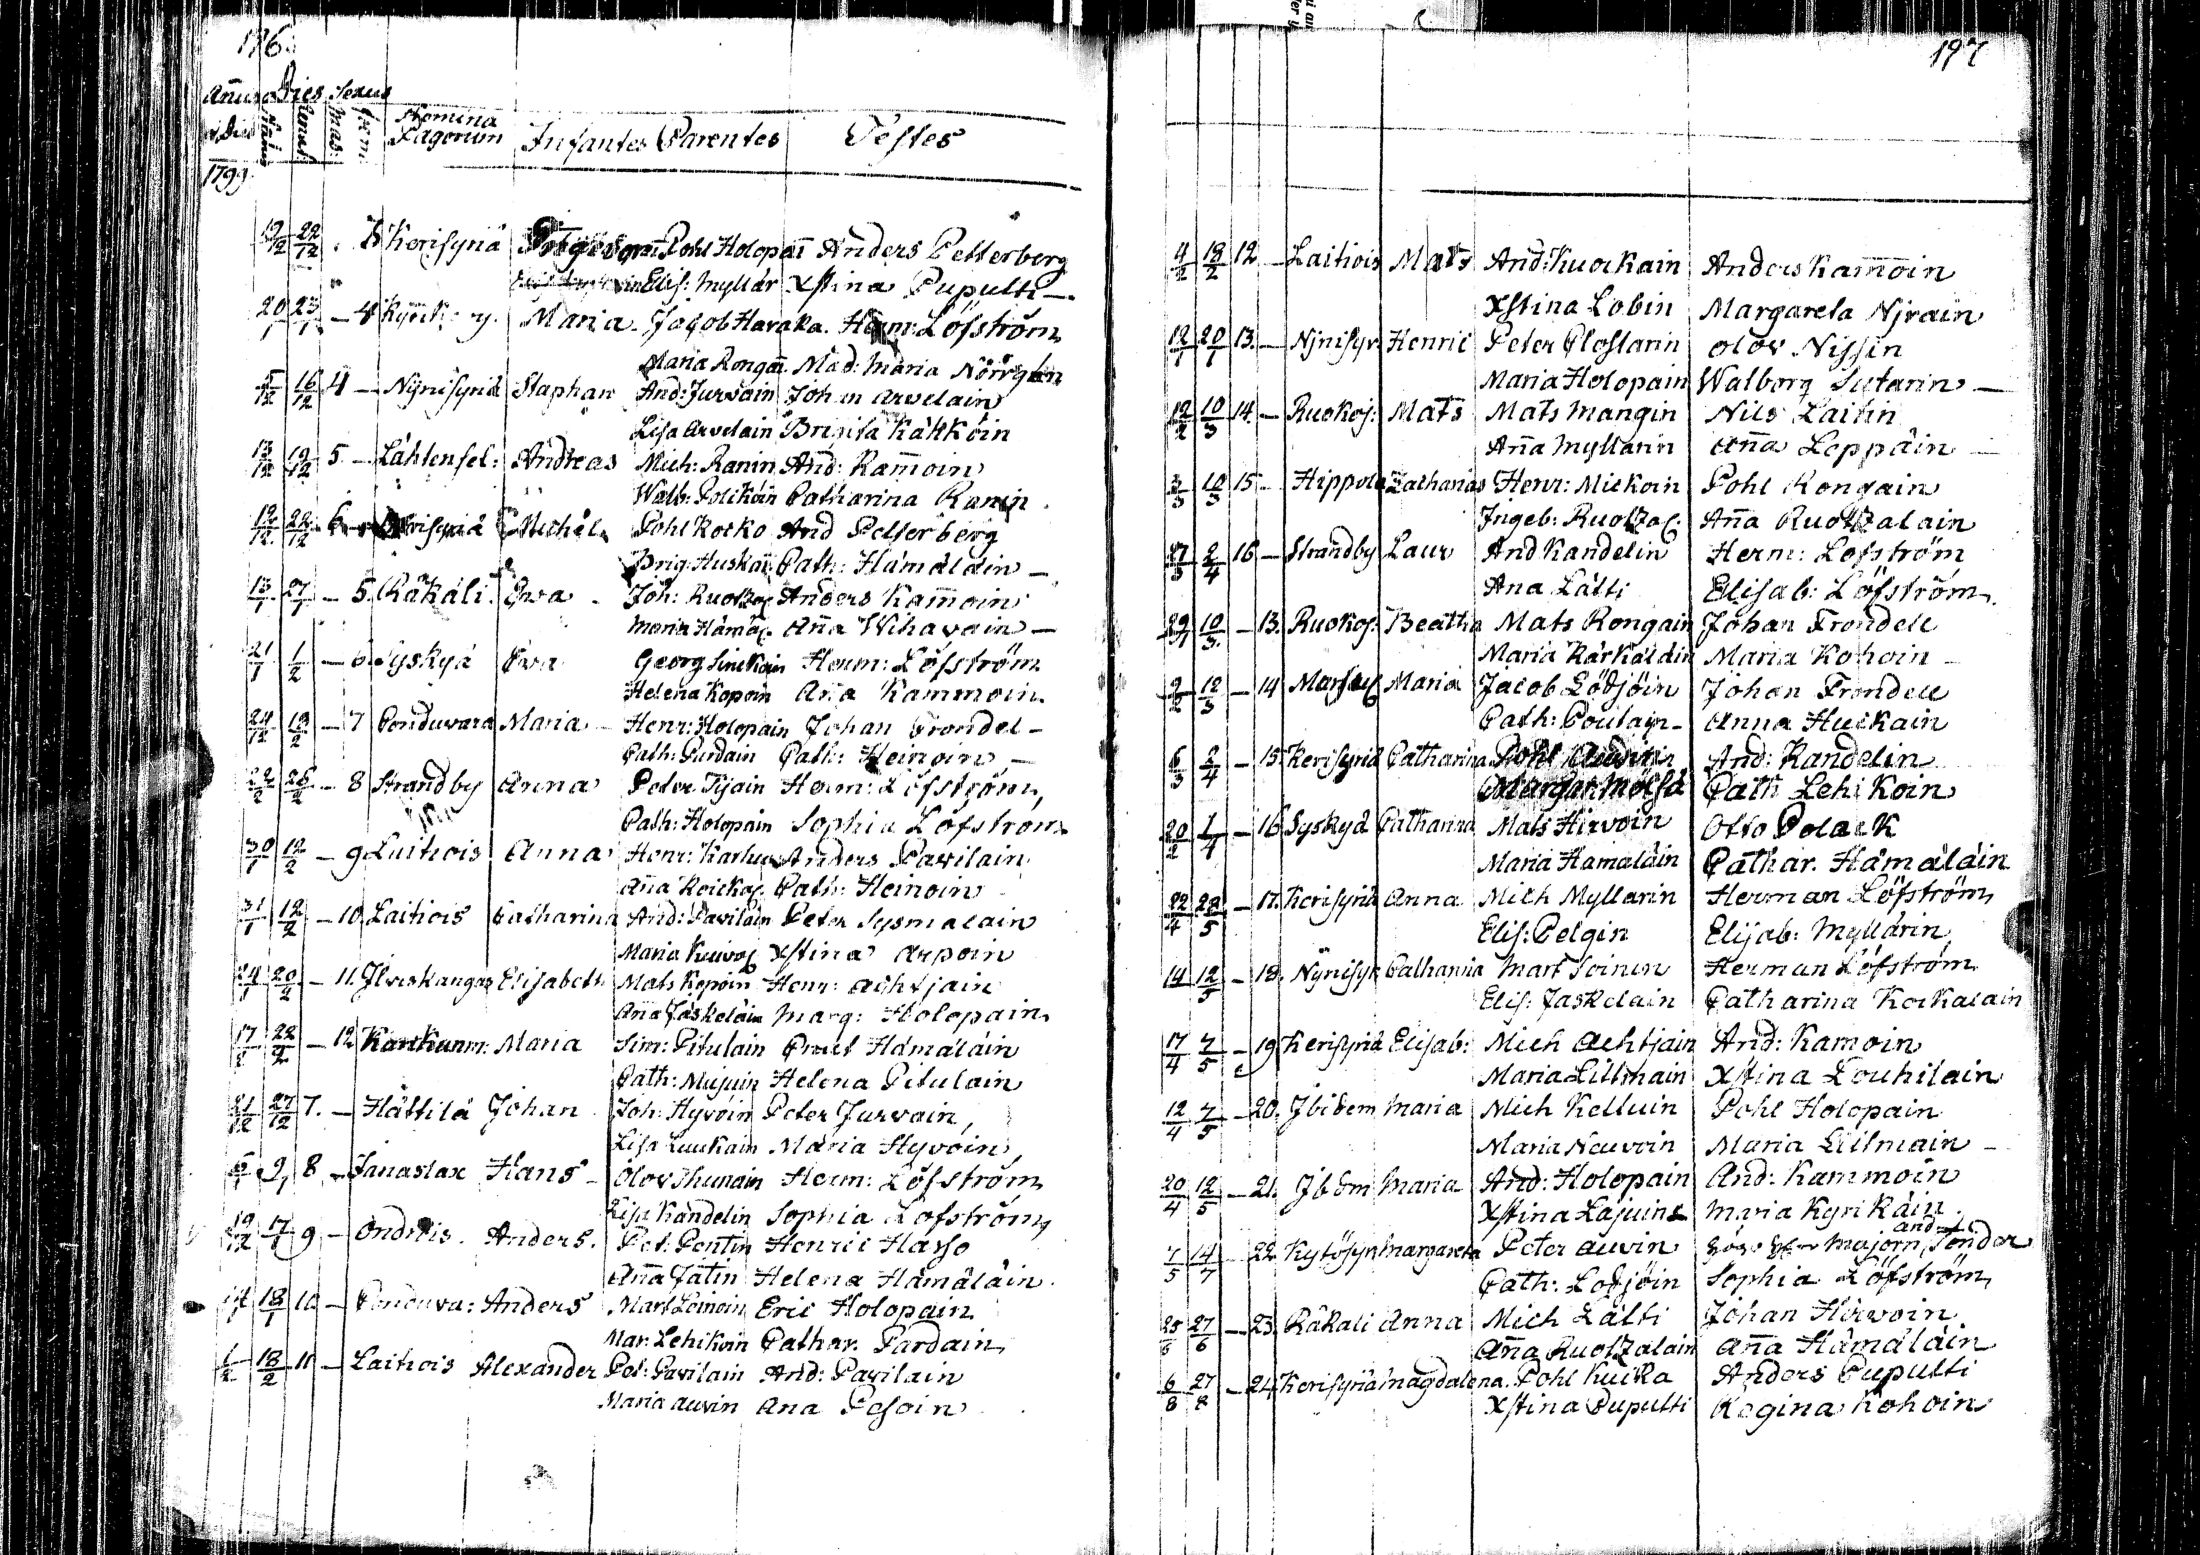 196.
Annus Dies Sexus
et Dies Natus Renat mas: fæm: Nomina Pagorum Infantes Parentes Testes
1799
19/12 22/12 . 3 Kerisyriä Pohl Holopai Anders Petterberg
Elis: Myllär Xstina Puputti —
20/1 23/1 — 4 Maria Jacob Haraka. Herm: Löfström
Maria Rongai Mad: Maria Norrgren
5/12 16/12 4 — Nÿnisyriä Staphan And: Jurvain Johan Arvelain
Lisa Arvelain Brigita Käkköin
13/12 19/12 5 — Lähtensel: Andreas Mich: Ranin And: Kam̄oin
Walb: Polikäin Catharina Ranin
19/12 22/12 6 Michél Pohl Kocko And Petterberg
Brig: Huskai Cath: Hämäläin —
13/1 27/1 — 5. Räkäli. Ewa Joh: Ruotzal Anders Kam̄oin
Maria Hämäl. An̄a Wihavain —
21/1 1/2 — 6. Syskyä Ewa Georg Sinikain Herm: Löfström
Helena Kopoin Ana Kammoin.
24/12 19/2 — 7 Ponduvara Maria Henr: Holopain Johan Frondel —
Cath: Purdain Cath: Heinoin —
22/2 26/2 — 8 Strandby Anna Peter Tijain Herm: Löfström,
Cath: Holopain Sophia Löfström
30/1 12/2 — 9 Laitiois Anna Henr: Karhu Anders Pavilain
An̄a Koickal. Cath: Heinoin
31/1 12/2 — 10. Laitiois Catharina And: Pavilain Peter Sysmalain
Maria Kuival Xstina Arpoin
24/1 20/2 — 11. Ilveskangas Elisabeth Mats Kopoin Henr: Achtjain
An̄a Jäskeläin Marg: Holopain
17/1 22/2 — 12 Kankunm: Maria Sim: Pitulain Knut Hämäläin
Cath: Mujuin Helena Pitulain
21/12 27/12 7. — Hättilä Johan Joh: Hyvöin Peter Jurvain,
Lisa Luukain Maria Hyvöin,
6/1 9/1 8 — Janaslax Hans — Olov Ihunain Herm: Löfström
Lisa Kandelin Sophia Löfström
19/12 17/1 9 — Anders. Pet: Pentin Henric Hasso
An̄a Jatin Helena Hämäläin.
14/1 18/1 10 — Ponduva: Anders Mart Loinoin Eric Holopain
Mar: Lehikoin Cathar. Pardain
1/2 18/2 11 — Laitiois Alexander Pet: Pavilain And: Pavilain
Maria Auvin Ana Pesoin
197
4/2 18/2 12 — Laitiois Mats And: Kuockain Anders Kam̄oin
Xstina Lobin Margareta Njrain
12/1 20/1 13. — Njnisyr. Henric Peter Clostarin Olov Nissin
Maria Holopain Walborg Sutarin —
12/2 10/3 14. — Ruokoj: Mats Mats Mangin Nils Laitin
An̄a Myllarin An̄a Leppäin —
3/3 10/3 15 — Hippola Zacharias Henr: Mickoin Pohl Rongain
Ingeb: Ruotzal. An̄a Ruotzalain
27/3 2/4 16 — Strandby Laur And Kandelin Herm: Lofström
Ana Lätti Elisab: Löfström.
29/1 10/3. — 13. Ruokoj: Beatha Mats Rongain Johan Frondell
Maria Kärkäläin Maria Kohoin —
9/2 12/3 — 14 Maria Jacob Lötjöin Johan Frondell
Cath: Poutain — Anna Huckain
6/3 2/4 — 15. Kerisyriä Catharina Pohl Auvin And: Kandelin
Margar: Mölsä Cath Lehikoin
20/2 1/4 — 16 Syskyä Catharina Mats Hirvoin Otto Polack
Maria Hamaläin Cathar. Hämäläin
22/4 28/5 — 17. Kerisyriä Anna Mich Myllarin Herman Löfström
Elis: Pelgin Elisab: Myllärin
14 12/5 — 18. Nÿnisyr. Catharina Mart Soinin Herman Löfström
Elis: Jaskelain Catharina Kockalain
17/4 7/5 — 19 Kerisyriä Elisab: Mich Achtjain And: Kamoin
Maria Litmain Xstina Louhilain
12/4 7/5 — 20. Ibidem Maria Mich Kelluin Pohl Holopain
Maria Neuvoin Maria Litmain —
20/4 12/5 — 21. Ibdm Maria And: Holopain And: Kammoin
Xstina Lajuine Maria Kyrikäin
7/5 14/7 — 22. Kytösyr Margareta Peter Auvin Majorn and Tönder
Cath: Lotjöin Sophia Löfström
25/5 27/6 — 23. Räkali Anna Mich Lätti Johan Hirvoin
An̄a Ruotzalain An̄a Hämäläin
6/8 27/8 — 24. Kerisyriä Magdalena. Pohl Kuika Anders Puputti
Xstina Puputti Regina Kohoin